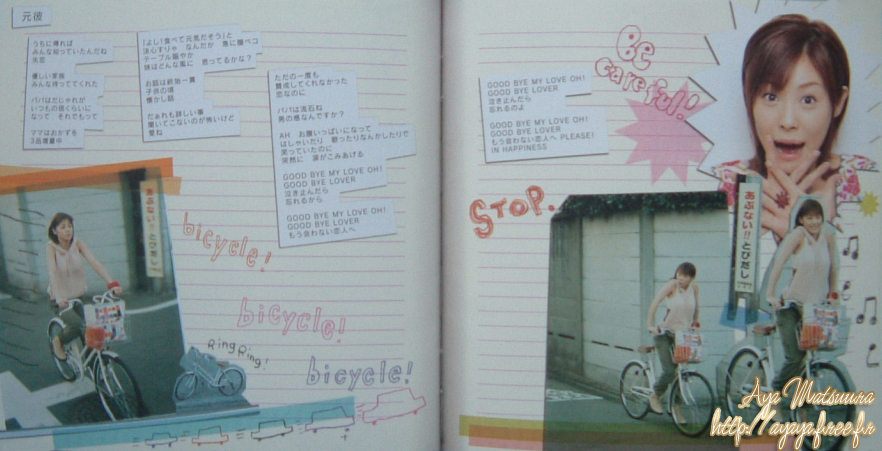 元彼
うちに帰れば
みんな知っていたんだね
失恋
優しい家族
みんな待っててくれた
パパはだじゃれが
いつもの倍くらいに
なって それでもって
ママはおかずを
3品増量中
「よし!食べて元気だそう」と
決心すりゃ なんだか 急に腹ペコ
テーブル賑やか
妹はどんな風に 思ってるかな?
お話は終始一貫
子供の頃
懐かし話
だぁれも詳しい事
聞いてこないのが怖いけど
愛ね
ただの一度も
賛成してくれなかった
恋なのに
パパは流石ね
男の感なんですか?
AH お腹いっぱいになって
はしゃいだり 歌ったりなんかしたりで
笑っていたのに
突然に 涙がこみあげる
GOOD BYE MY LOVE OH!
GOOD BYE LOVER
泣き止んだら
忘れるから
GOOD BYE MY LOVE OH!
GOOD BYE LOVER
もう会わない恋人へ
あぶない!!とびだし
bicycle!
bicycle!
Ring Ring!
bicycle!
GOOD BYE MY LOVE OH!
GOOD BYE LOVER
泣き止んだら
忘れるのよ
GOOD BYE MY LOVE OH!
GOOD BYE LOVER
もう会わない恋人へ PLEASE!
IN HAPPINESS
BE
careful!
STOP.
あぶない!!とびだし
Aya Matsuura
http://ayaya.free.fr